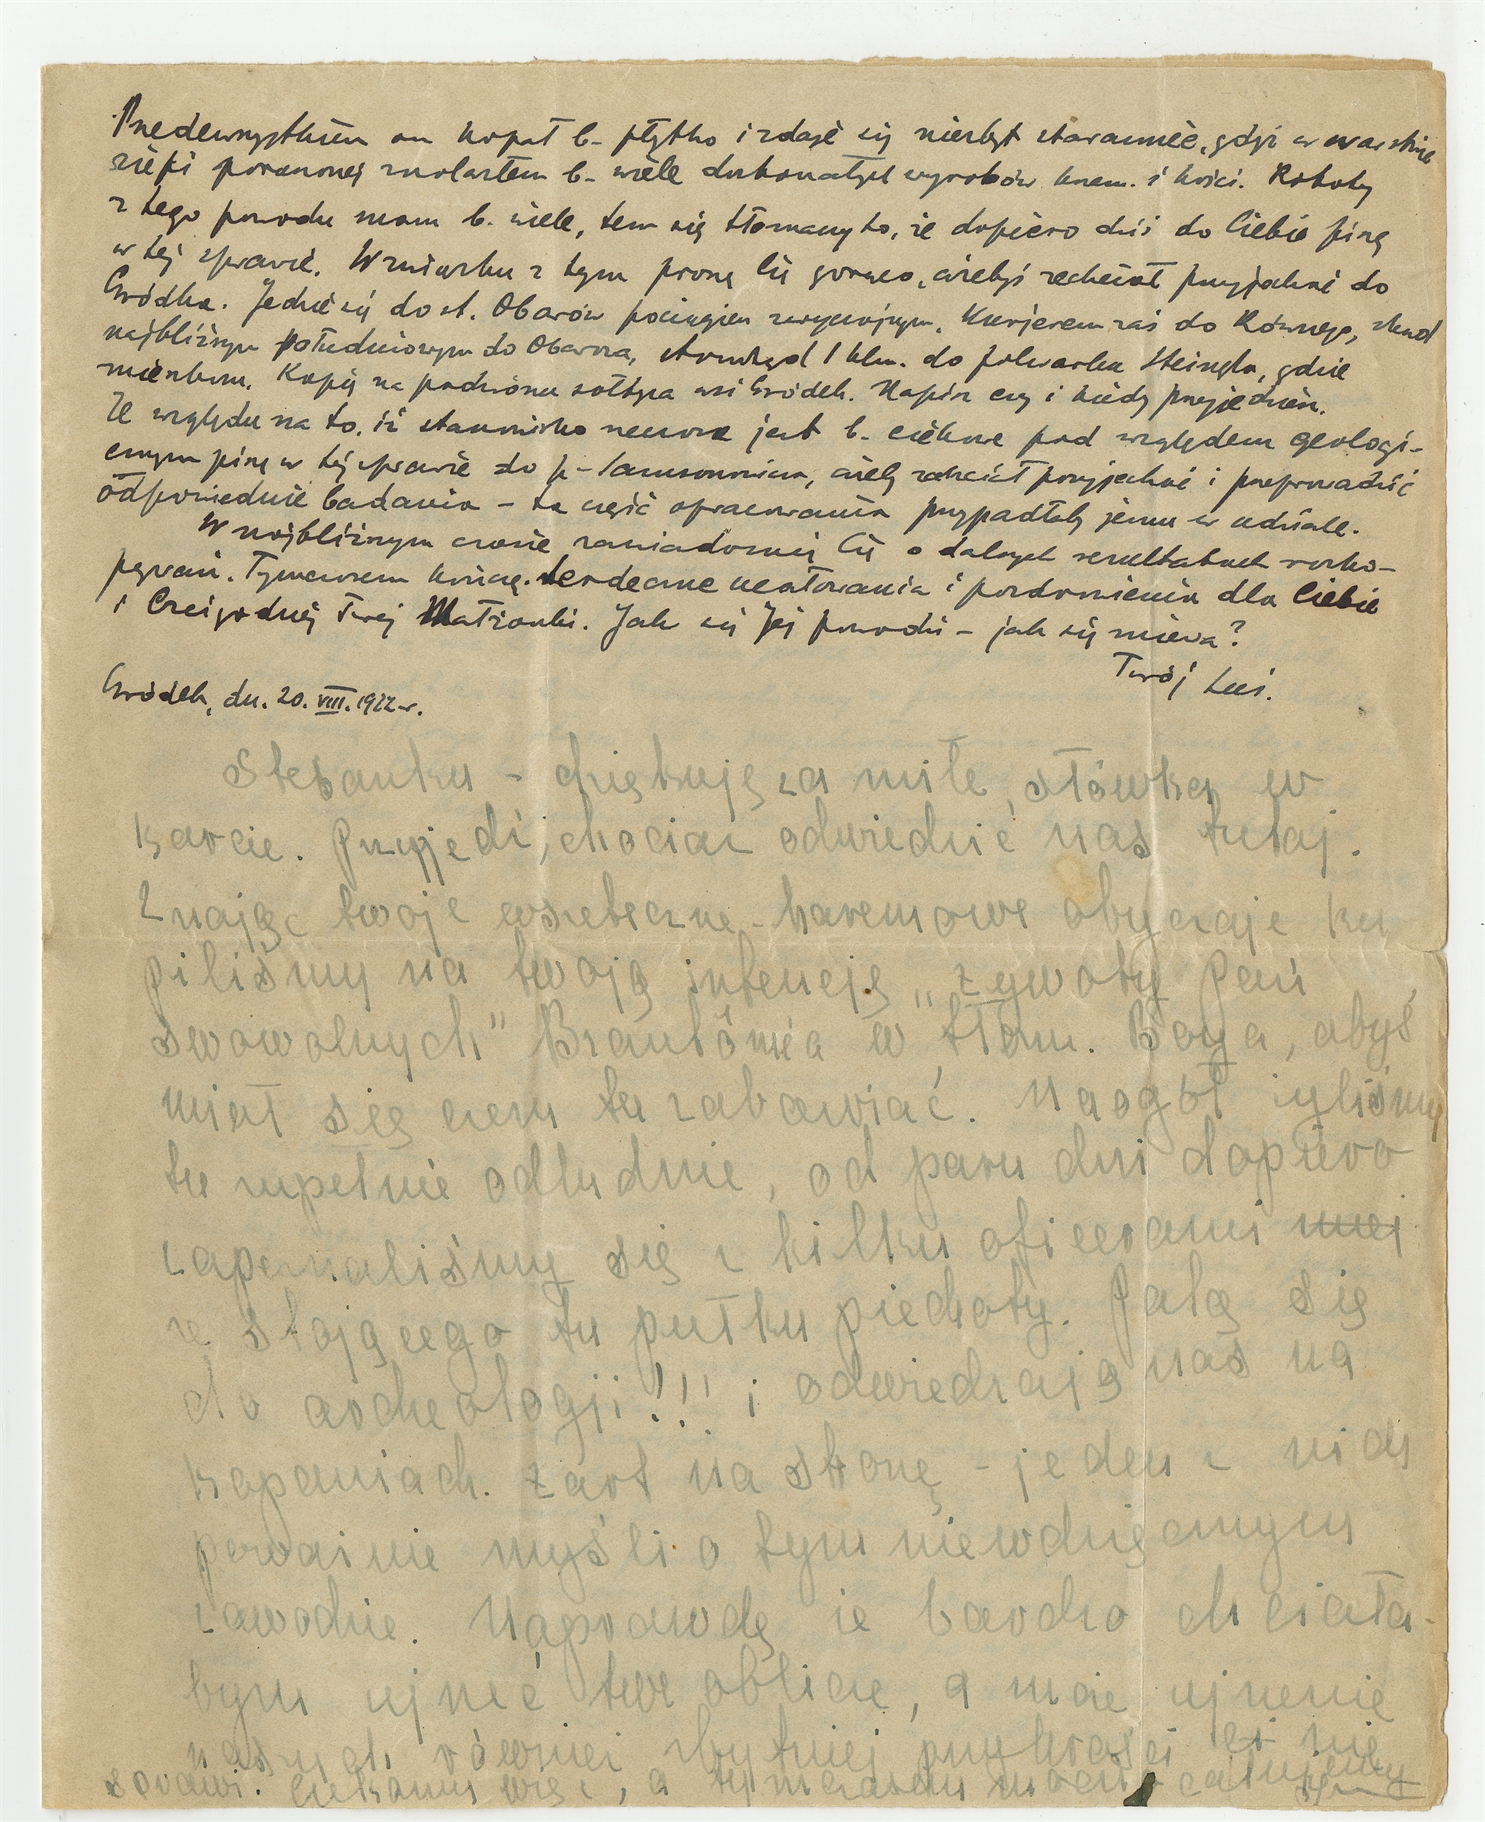 Przedewszystkiem on kopał b. płytko i zdaje się niezbyt starannie, gdyż w warstwie
ziemi poruszonej znalazłem b. wiele doskonałych wyrobów krzem. i kości. Roboty
z tego powodu mam b. wiele, tem się tłomaczy to, że dopiero dziś do Ciebie piszę
w tej sprawie. W związku z tym proszę Cię gorąco, ażebyś zechciał przyjechać do
Gródka. Jedzie się do st. Obarów pociągiem zwyczajnym. Kurjerem zaś do Równego, skąd
najbliższym południowym do Obarowa, stamtąd 1 klm. do folwarku Steingla, gdzie
mieszkam. Kopię na podwórzu sołtysa wsi Gródek. Napisz czy i kiedy przyjedziesz.
Ze względu na to, iż stanowisko nasze jest b. ciekawe pod względem geologi-
cznym piszę w tej sprawie do p. Samsonowicza, ażeby zechciał przyjechać i przeprowadzić
odpowiednie badania – ta część opracowania przypadłaby jemu w udziale.
W najbliższym czasie zawiadomię Cię o dalszych rezultatach rozko-
pywań. Tymczasem kończę. Serdeczne ucałowania i pozdrowienia dla Ciebie
i Czcigodnej Twej Małżonki. Jak się Jej powodzi – jak się miewa?
Twój Luś.
Gródek, dn. 20. VIII. 1922 r.
Stefanku – dziękuję za miłe słówka w
karcie. Przyjedź, chociaż odwiedzić nas tutaj.
Znając twoje wszeteczne-haremowe obyczaje ku
piliśmy na twoją intencję "żywoty Pań
swowolnych" Brantôme'a w tłom. Boya, abyś
miał się czem tu zabawiać. Naogół żyliśmy
tu zupełnie odludnie, od paru dni dopiero
zapoznaliśmy się z kilku oficerami
ze stojącego tu pułku piechoty. Palą się
do archeologji!!! i odwiedzają nas na
kopaniach. Żart na stronę – jeden z nich
poważnie myśli o tym niewdzięcznym
zawodzie. Naprawdę że bardzo chciała-
bym ujrzeć twe oblicze, a może ujrzenie
naszych również zbytniej przykrości ci nie
sprawi. Czekamy więc, a tymczasem mocno całujemy